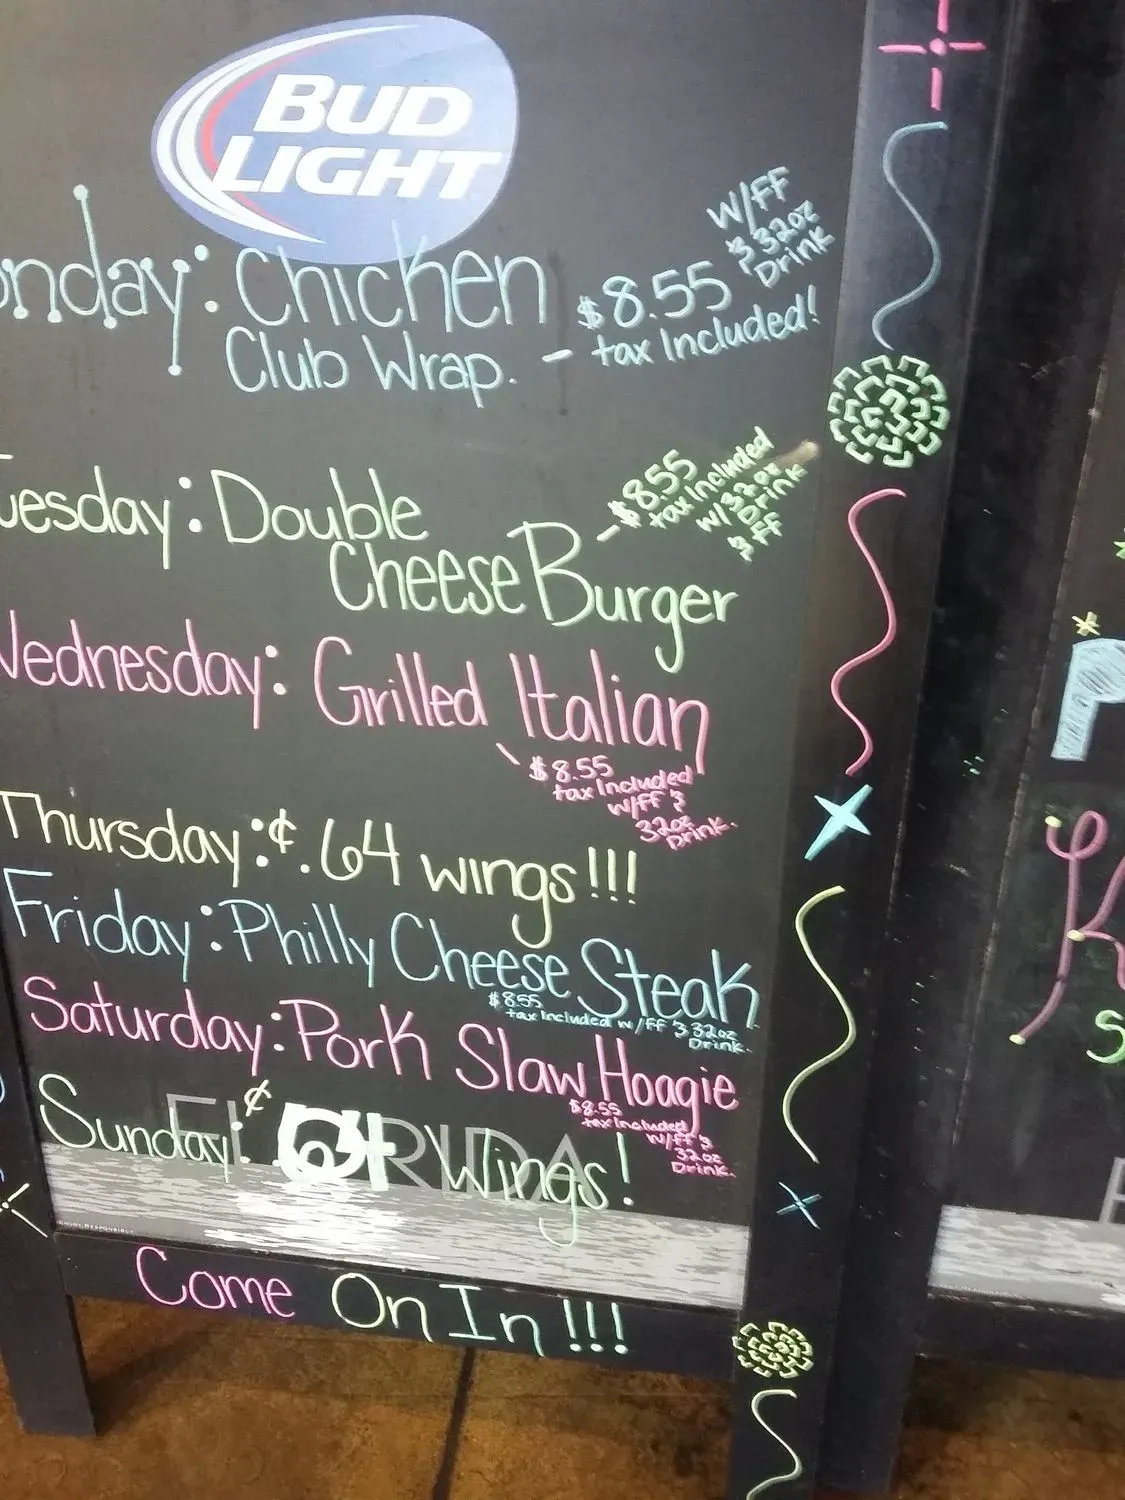 BUD
LIGHT
onday: Chicken
Club Wrap. - $8.55 W/FF
& 32oz
Drink
tax Included!
uesday: Double
Cheese Burger
- $8.55
tax included
W/ 32oz
Drink
& FF
Wednesday: Grilled Italian
$8.55
tax included
W/FF &
32oz
Drink.
Thursday: ¢.64 wings!!!
Friday: Philly Cheese Steak
$8.55
tax Included w/FF & 32oz
Drink.
Saturday: Pork Slaw Hoagie
$8.55
tax included
W/FF &
32oz
Drink.
FLORIDA
Sunday: ¢ .64 Wings!
ENJOY RESPONSIBLY
Come On In!!!
P
K
S